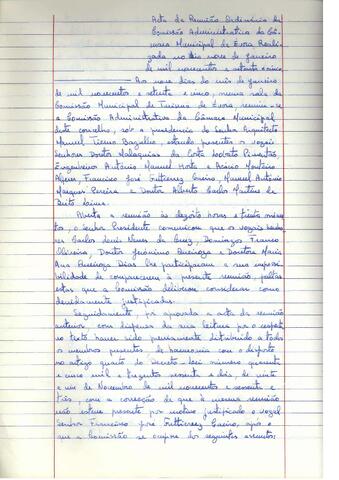 Acta da Reunião Ordinária da
Comissão Administrativa da Câ-
mara Municipal de Évora Reali-
zada no dia nove de Janeiro
de mil novecentos e setenta e cinco
Aos nove dias do mês de Janeiro
de mil novecentos e setenta e cinco, numa sala da
Comissão Municipal de Turismo de Évora, reuniu-se
a Comissão Administrativa da Câmara Municipal
deste concelho, sob a presidência do Senhor Arquitecto
Manuel, estando presentes os vogais
Senhores Doutor da Costa,
Engenheiro António Manuel, Acácio Monteiro
Francisco José Gutierrez, Manuel António
Pereira e Doutor Alberto Carlos Martins de
Brito
Aberta a reunião às dezoito horas e trinta minu-
tos, o Senhor Presidente comunicou que os vogais Senho-
res Carlos Luís Neves da Cruz, Domingos Franco
Oliveira, Doutor Jerónimo e Doutora Maria
Ana Dias lhe participaram a sua impossi-
bilidade de comparecerem à presente reunião, faltas
estas que a Comissão deliberou considerar como
devidamente justificadas.
Seguidamente, foi aprovada a acta da reunião
anterior, com dispensa da sua leitura por o respecti-
vo texto haver sido previamente distribuído a todos
os membros presentes, de harmonia com o disposto
no artigo quarto do Decreto-Lei número quarenta
e cinco mil e trezentos sessenta e dois, de vinte
e um de Novembro de mil novecentos e sessenta e
três, com a correcção de que à mesma reunião
não esteve presente por motivo justificado o vogal
Senhor Francisco José Gutierrez, após o
que a Comissão se ocupou dos seguintes assuntos: